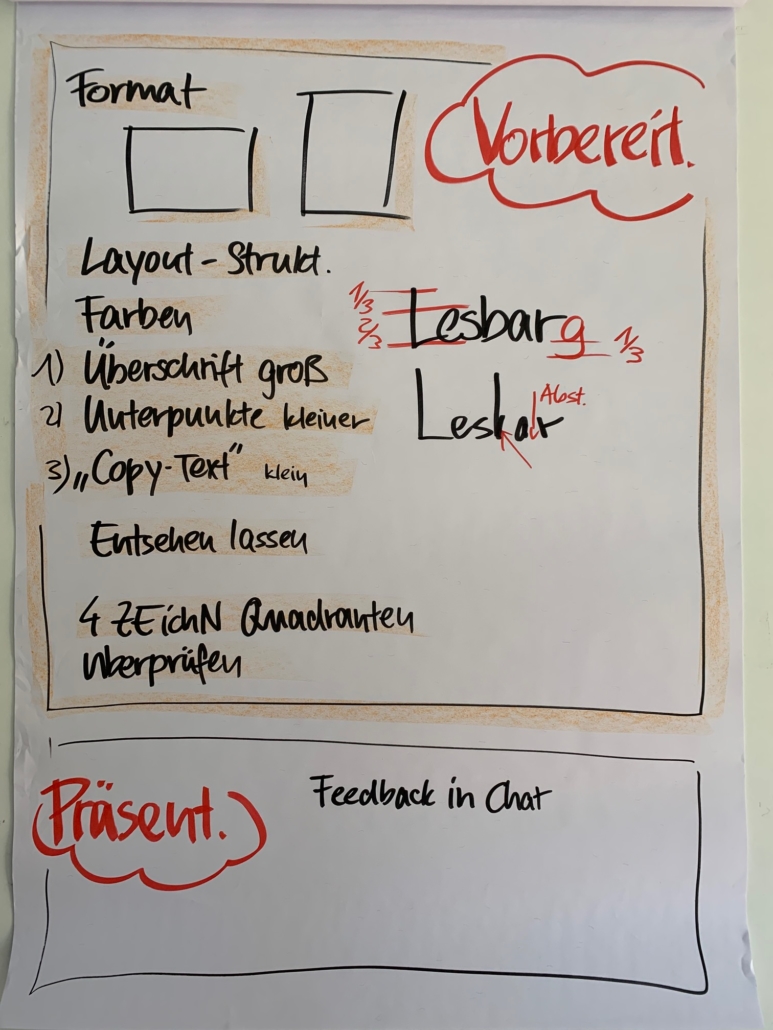 Format
Vorbereit.
Layout - Strukt.
Farben
1/3
2/3
Lesbar g
1/3
1) Überschrift groß
2) Unterpunkte kleiner
Lesbar
Abst.
3) „Copy-Text" klein
Entsehen lassen
4 ZEichN Quadranten
überprüfen
Präsent.
Feedback in Chat